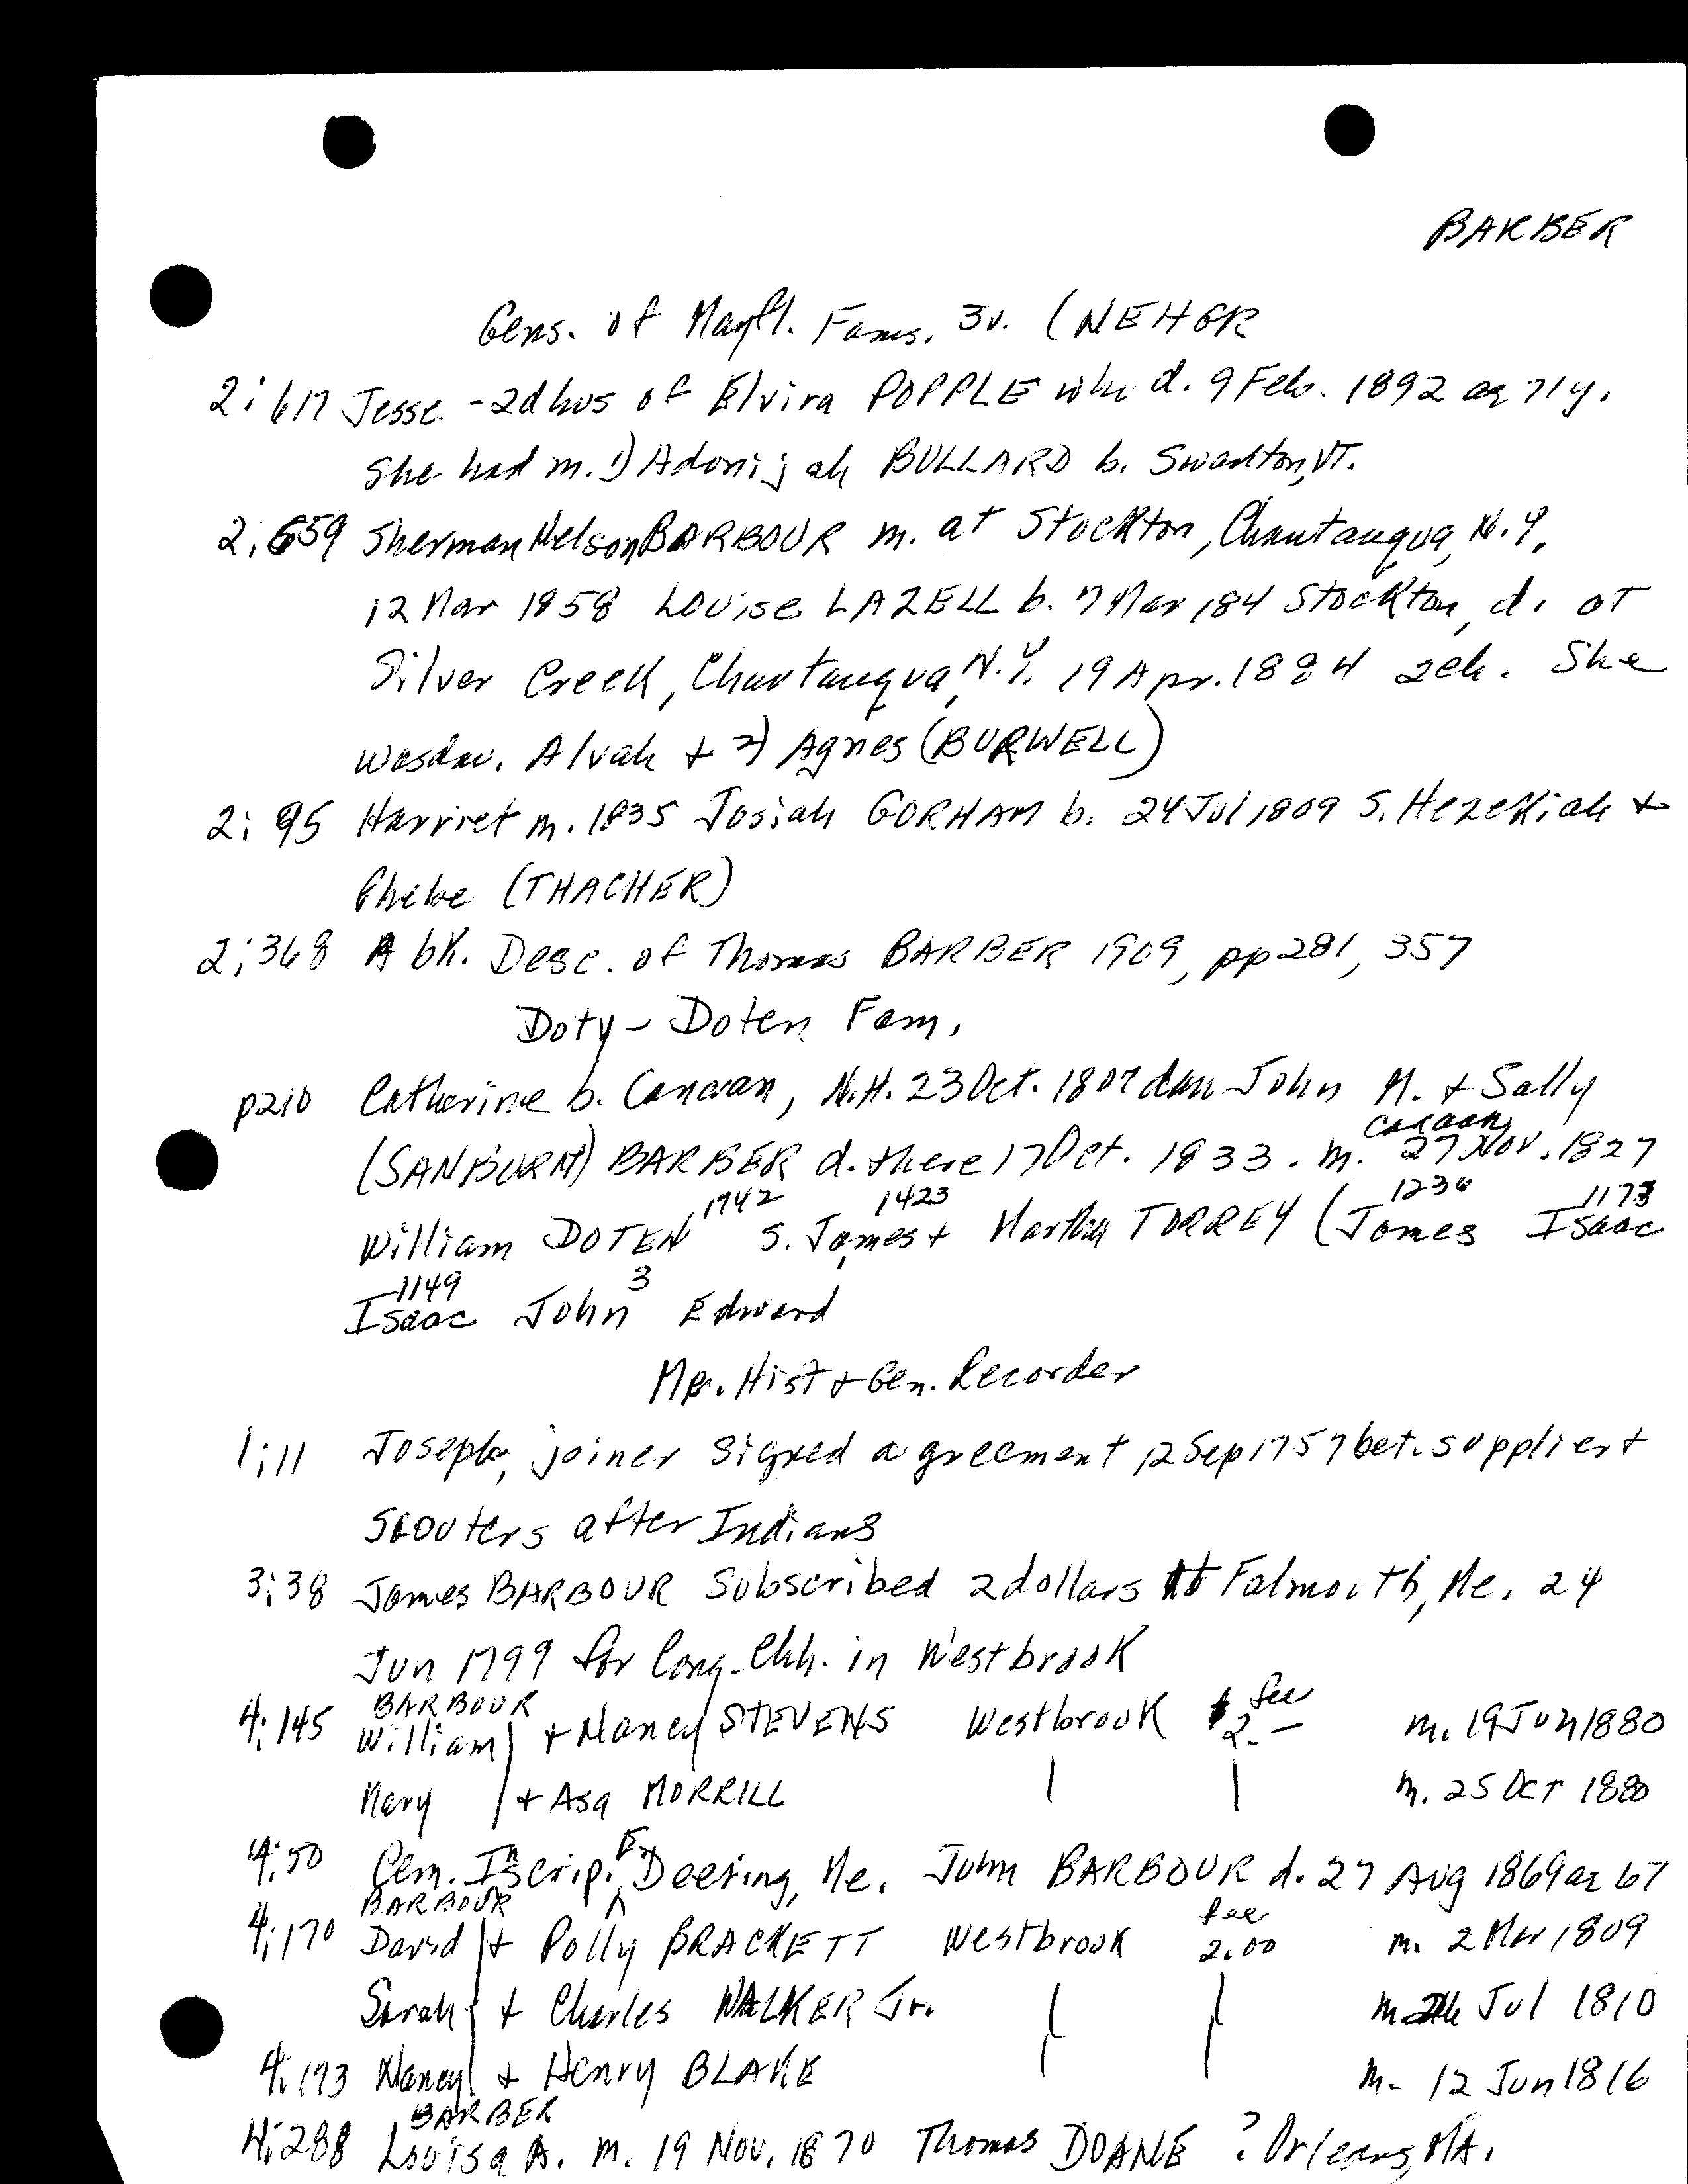 BARBER
Gens. of Mayfl. Fams. 3v. (NEHGR
2:617 Jesse - 2d hus of Elvira POPPLE who d. 9 Feb. 1892 ae 71y.
She had m. 1) Adonijah BULLARD b. Swanton, VT.
2:659 Sherman Nelson BARBOUR m. at Stockton, Chautauqua, N.Y.
12 Mar 1858 Louise LAZELL b. 7 Mar 184 Stockton, d. at
Silver Creek, Chautauqua, N.Y. 19 Apr. 1884 2ch. She
was dau. Alvah + 2) Agnes (BURWELL)
2:95 Harriet m. 1835 Josiah GORHAM b. 24 Jul 1809 S. Hezekiah +
Phebe (THACHER)
2:368 A bk. Desc. of Thomas BARBER 1909, pp 281, 357
Doty - Doten Fam.
p210 Catherine b. Canaan, N.H. 23 Oct. 1807 dau John M. + Sally
Canaan
(SANBURN) BARBER d. there 17 Oct. 1833. m. 27 Nov. 1827
1742 1423 1236 1173
William DOTEN S. James + Martha TORREY (James Isaac
1149 3
Isaac John Edward
Me. Hist + Gen. Recorder
1:11 Joseph, joiner signed agreement 12 Sep 1757 bet. supplier +
scouters after Indians
3:38 James BARBOUR subscribed 2 dollars at Falmouth, Me. 24
Jun 1799 for Cong. Chh. in Westbrook
BARBOUR fee
4:145 William + Nancy STEVENS Westbrook $2.- m. 19 Jun 1880
Mary + Asa MORRILL m. 25 Oct 1880
4:50 Cem. Inscrip. E. Deering, Me. John BARBOUR d. 27 Aug 1869 ae 67
BARBOUR fee
4:170 David + Polly BRACKETT Westbrook 2.00 m. 2 Mar 1809
Sarah + Charles WALKER Jr. m. Jul 1810
4:173 Nancy + Henry BLAKE m. 12 Jun 1816
BARBER
4:288 Louisa A. m. 19 Nov. 1870 Thomas DOANE ? Orleans, MA.